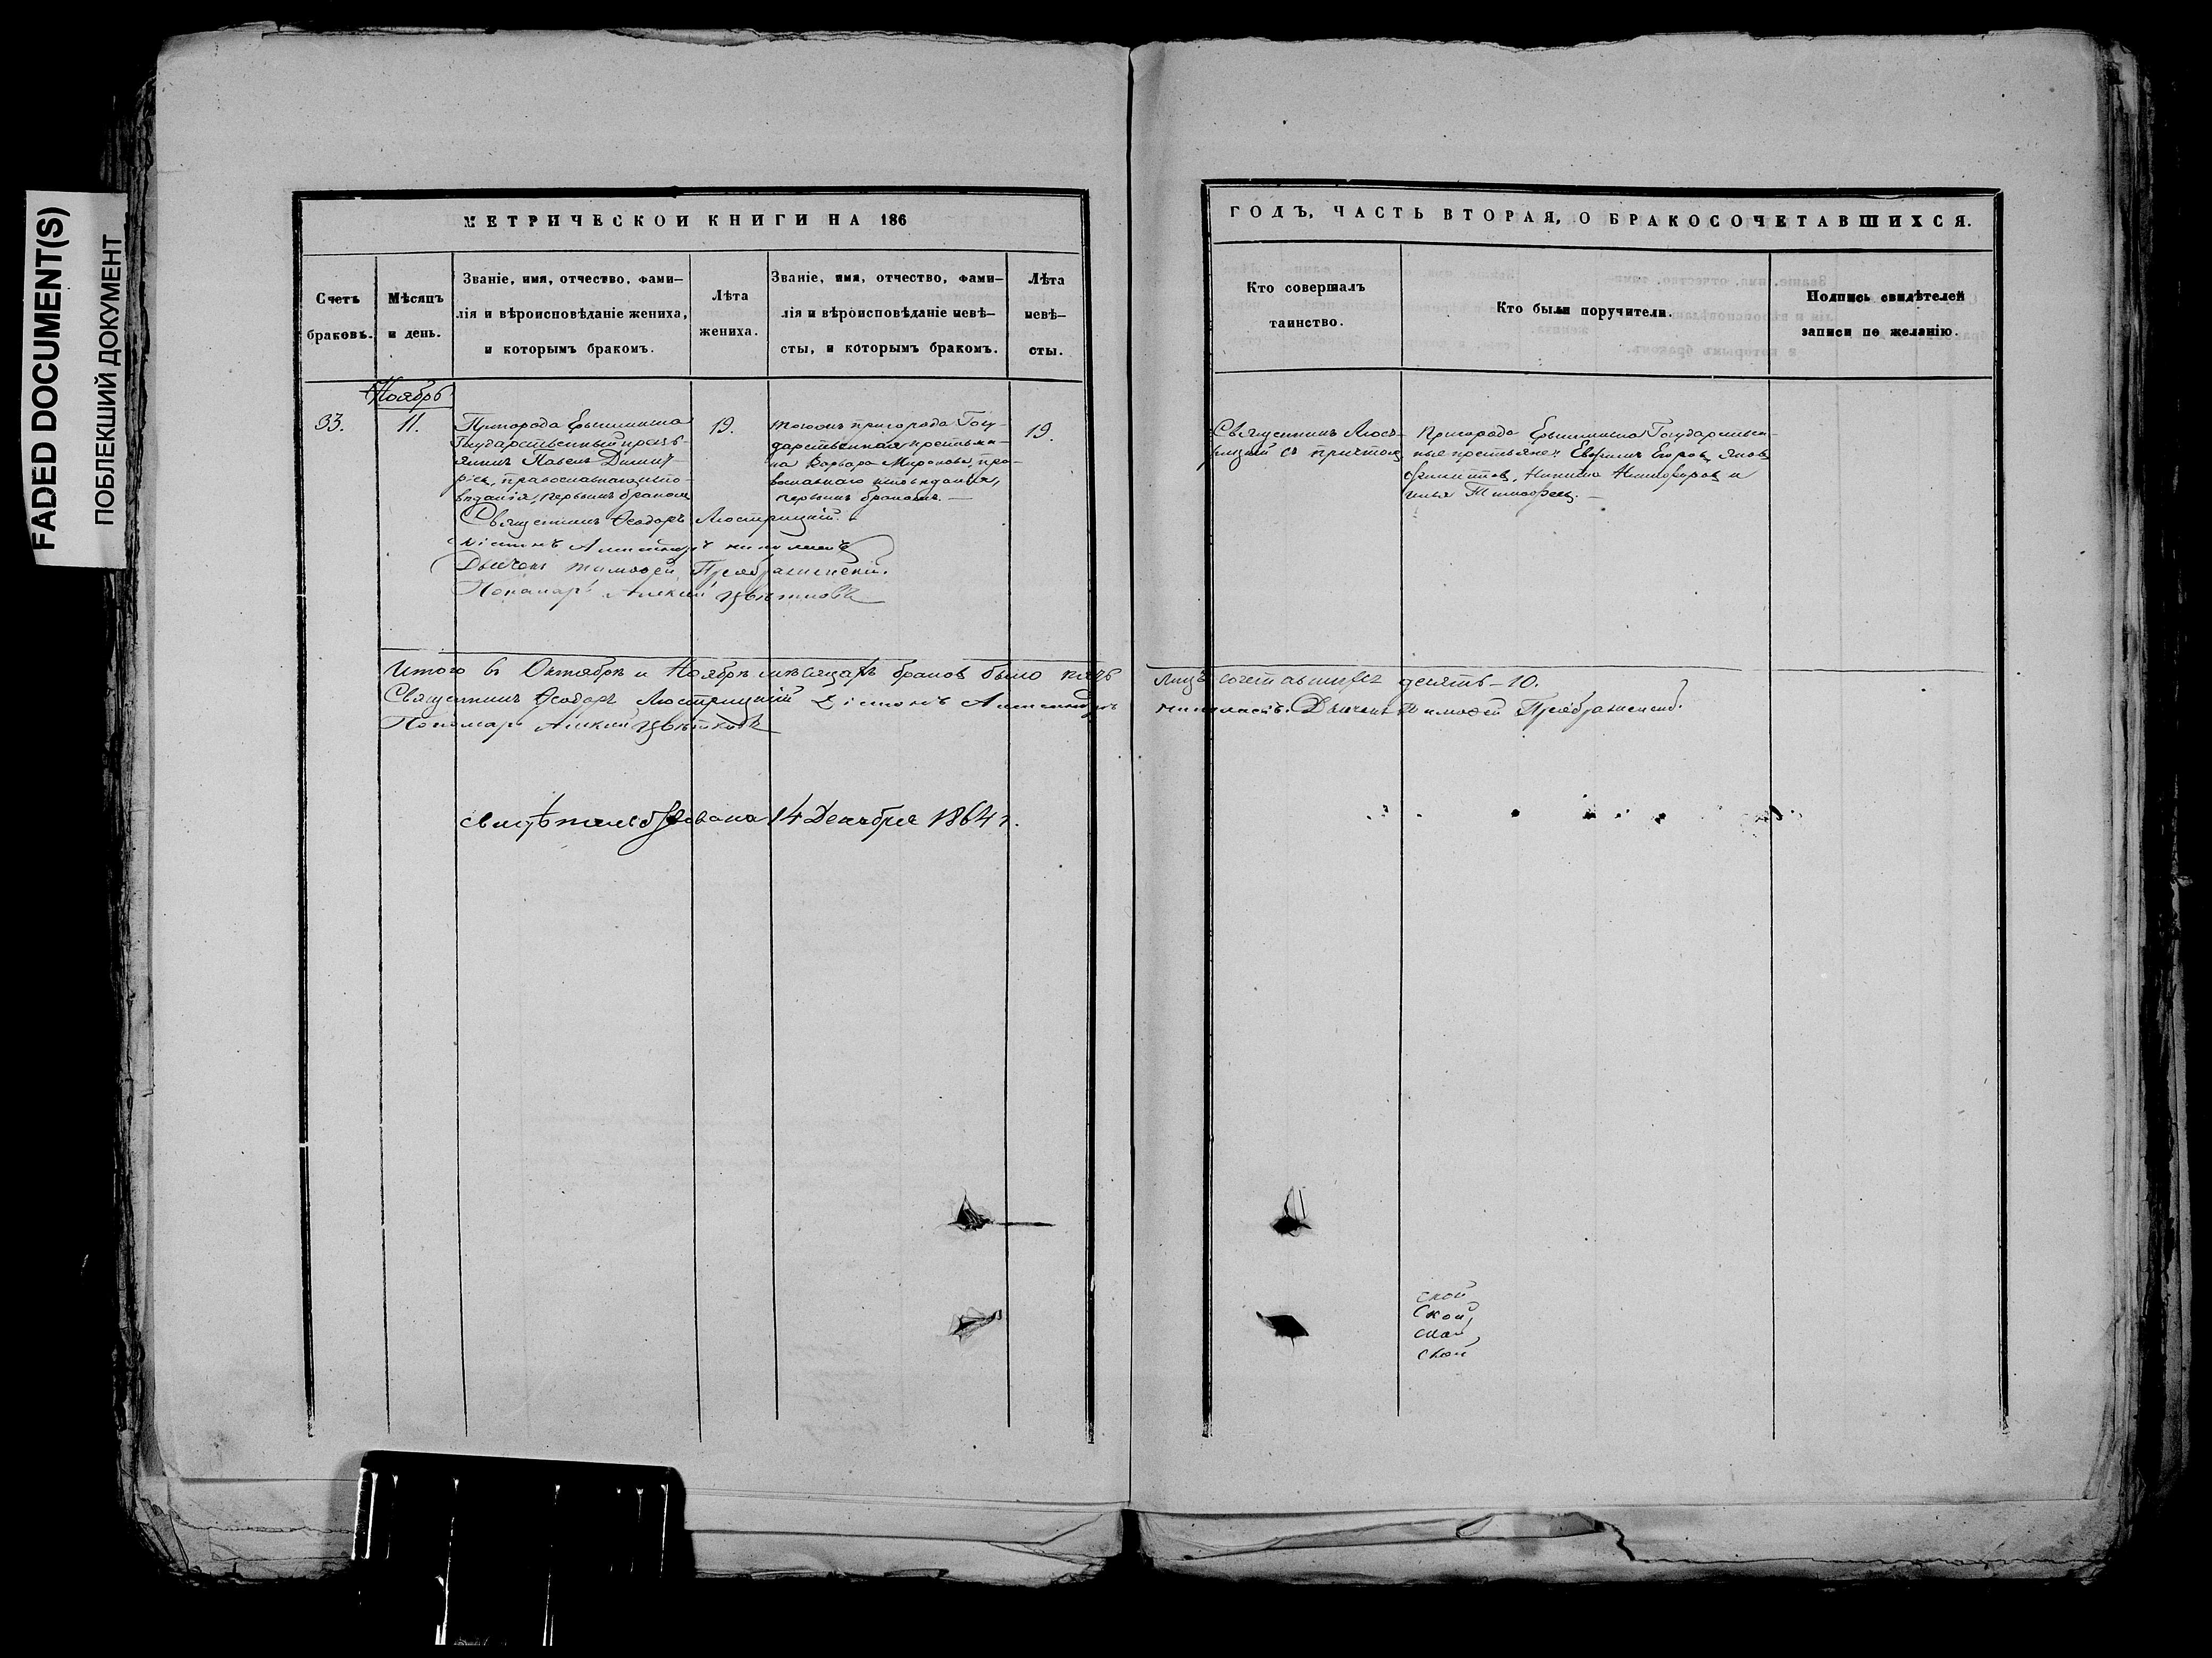 FADED DOCUMENT(S)
ПОБЛЕКШИЙ ДОКУМЕНТ
МЕТРИЧЕСКОЙ КНИГИ НА 186
Счетъ браковъ.
Мѣсяцъ и день.
Званіе, имя, отчество, фами-
лія и вѣроисповѣданіе жениха,
и которымъ бракомъ.
Лѣта жениха.
Званіе, имя, отчество, фами-
лія и вѣроисповѣданіе невѣ-
сты, и которымъ бракомъ.
Лѣта невѣ-
сты.
Ноябрь
33.
11.
Пригорода Ерыклинска
Государственный кресть-
янинъ Павелъ Димит-
ріев, православнаго испо-
вѣданія, первымъ бракомъ
19.
тогожъ пригорода Госу-
дарственная крестьян-
ка Варвара Миронова, пра-
вославнаго исповѣданія,
первымъ бракомъ. —
19.
Священникъ Ѳеодоръ Люстрицкій.
Діаконъ Александръ
Дьячекъ Тимоѳей Преображенскій.
Пономарь Алексій Цвѣтковъ
Итого въ Октябрѣ и Ноябрѣ мѣсяцахъ браковъ было пять
Священникъ Ѳеодоръ Люстрицкій Діаконъ Александръ
Пономарь Алексій Цвѣтковъ
свидѣтельствована 14 Декабря 1864 г.
ГОДЪ, ЧАСТЬ ВТОРАЯ, О БРАКОСОЧЕТАВШИХСЯ.
Кто совершалъ
таинство.
Кто были поручители.
Подпись свидѣтелей
записи по желанію.
Священникъ Люст-
рицкій съ причтомъ
Пригорода Ерыклинска Государствен-
ные крестьяне: Евфимъ Егоров, Яков
Никита Никифоров и
Илья Тимофеев. —
лицъ сочетавшихся десять — 10.
Дьячекъ Тимоѳей Преображенскій.
ской
ской,
ской,
ской